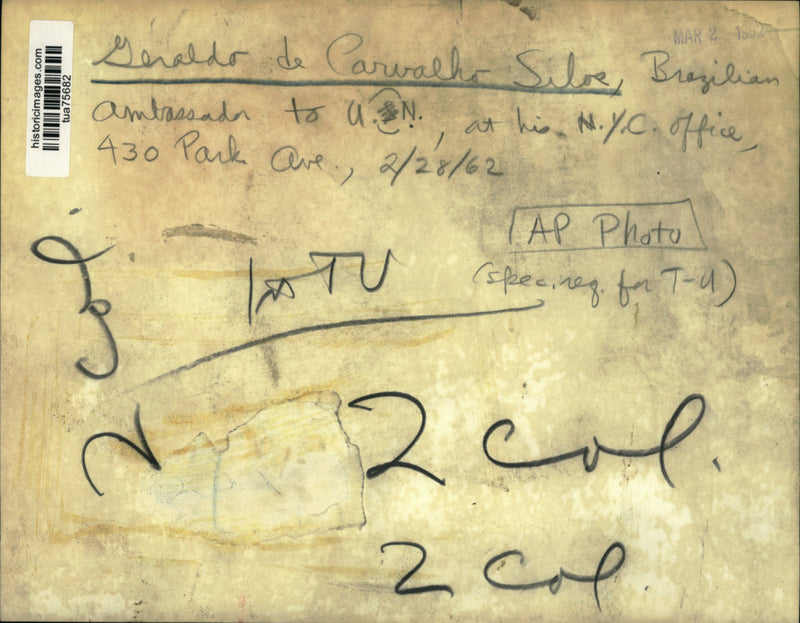 MAR 2 1962
historicimages.com
tua75682
Geraldo de Carvalho Silos, Brazilian
ambassador to U.N., at his N.Y.C. office,
430 Park Ave., 2/28/62
AP Photo
(spec. req. for T-U)
1st TU
2 col.
2 col.